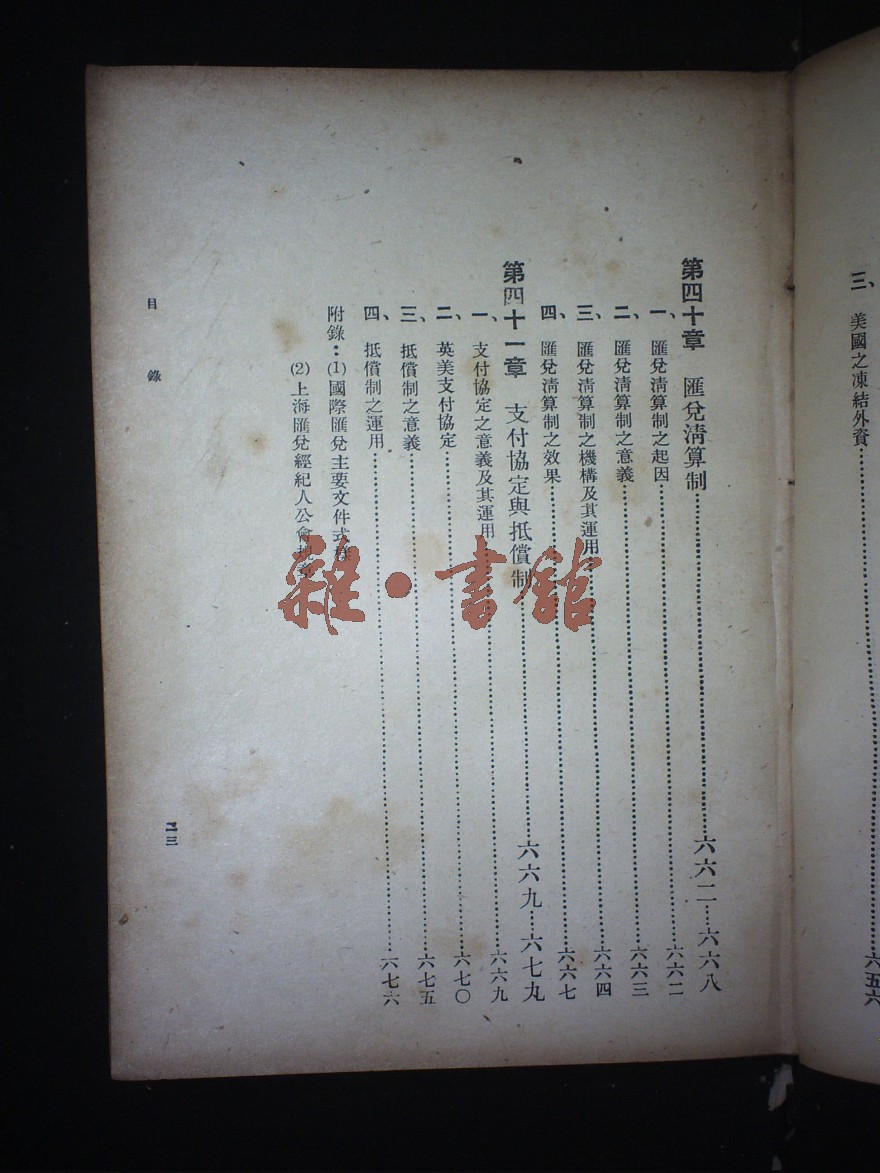 三、美國之凍結外資……六五六
第四十章 匯兌淸算制……六六二…六六八
一、匯兌淸算制之起因……六六二
二、匯兌淸算制之意義……六六三
三、匯兌淸算制之機構及其運用……六六四
四、匯兌淸算制之效果……六六七
第四十一章 支付協定與抵償制……六六九…六七九
一、支付協定之意義及其運用……六六九
二、英美支付協定……六七〇
三、抵償制之意義……六七五
四、抵償制之運用……六七六
附錄：(1)國際匯兌主要文件式
(2)上海匯兌經紀人公會
目錄
二三
雜·書館